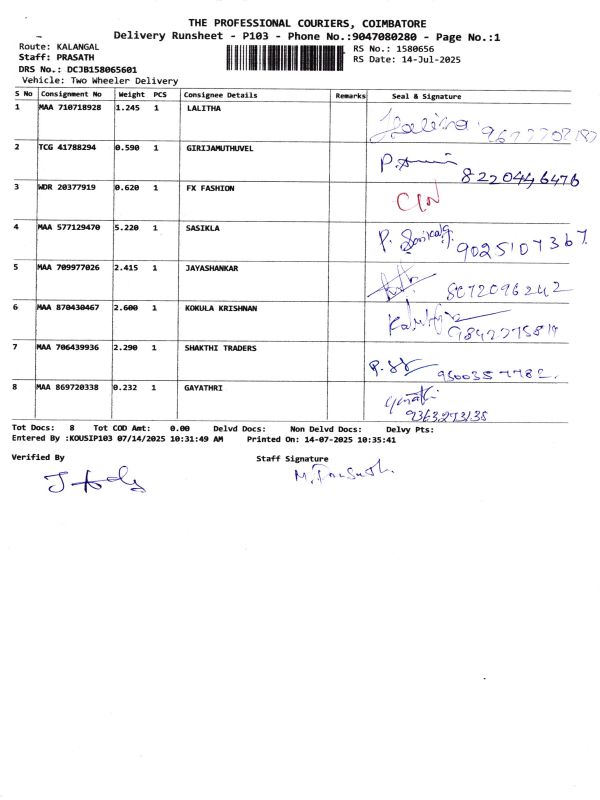 THE PROFESSIONAL COURIERS, COIMBATORE
Delivery Runsheet - P103 - Phone No.:9047080280 - Page No.:1
Route: KALANGAL RS No.: 1580656
Staff: PRASATH RS Date: 14-Jul-2025
DRS No.: DCJB158065601
Vehicle: Two Wheeler Delivery
S No Consignment No Weight PCS Consignee Details Remarks Seal & Signature
1 MAA 710718928 1.245 1 LALITHA
Lalitha
2 TCG 41788294 0.590 1 GIRIJAMUTHUVEL
8220446476
3 WDR 20377919 0.620 1 FX FASHION
4 MAA 577129470 5.220 1 SASIKLA
P. 9025107367
5 MAA 709977026 2.415 1 JAYASHANKAR
6 MAA 870430467 2.600 1 KOKULA KRISHNAN
7 MAA 706439936 2.290 1 SHAKTHI TRADERS
8 MAA 869720338 0.232 1 GAYATHRI
9363273138
Tot Docs: 8 Tot COD Amt: 0.00 Delvd Docs: Non Delvd Docs: Delvy Pts:
Entered By :KOUSIP103 07/14/2025 10:31:49 AM Printed On: 14-07-2025 10:35:41
Verified By Staff Signature
M. Prasath